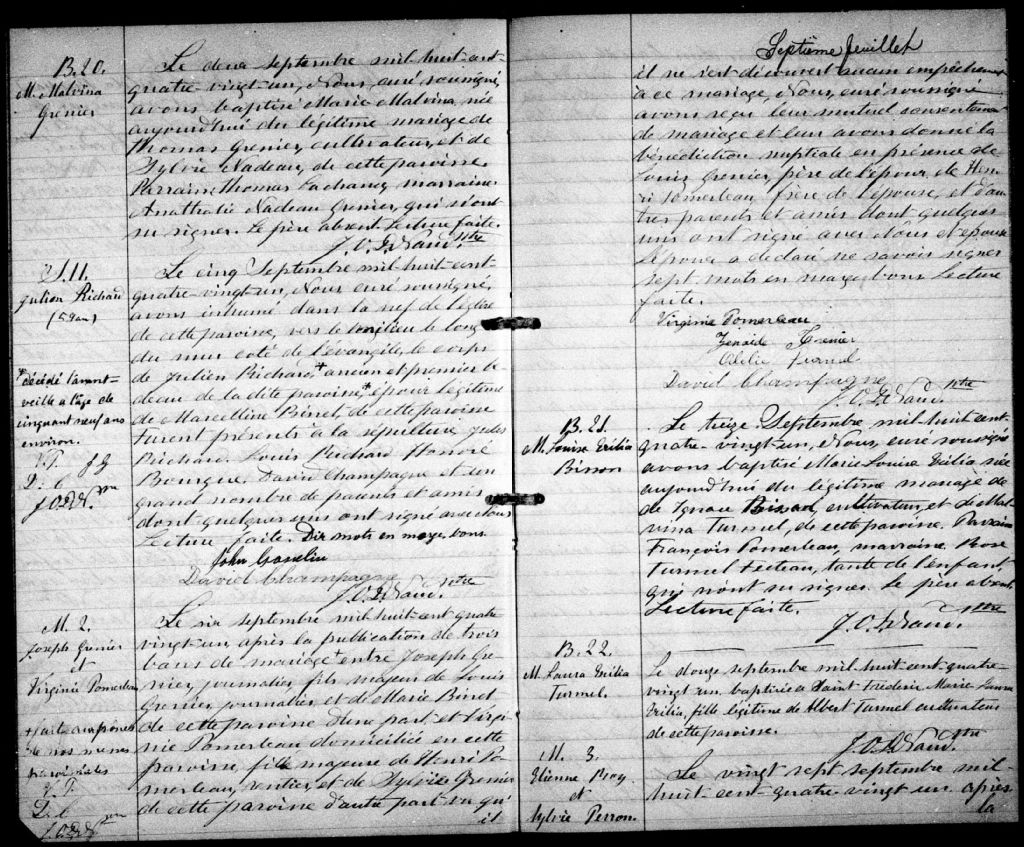 B.20.
M. Malvina
Grenier
Le deux septembre mil-huit-cent-
quatre-vingt-un, Nous, curé soussigné,
avons baptisé Marie Malvina, née
aujourd'hui du légitime mariage de
Thomas Grenier, cultivateur, et de
Sylvie Nadeau, de cette paroisse.
Parrain, Thomas Lachance, marraine
Anathalie Nadeau Grenier, qui n'ont
su signer. Le père absent. Lecture faite.
Ptre
S.11.
Julien Richard
(59 ans)
+décédé l'avant-
veille à l'âge de
cinquante neuf ans
environ.
Le cinq Septembre mil-huit-cent-
quatre-vingt-un, Nous curé soussigné,
avons inhumé dans la nef de l'église
de cette paroisse, vers le milieu le long
du mur coté de l'évangile, le corps
de Julien Richard,+ ancien et premier be-
deau de la dite paroisse,+ époux légitime
de Marcelline Binet, de cette paroisse
furent présents à la sépulture Jules
Richard Louis Richard Honoré
Bourque, David Champagne et un
grand nombre de parents et amis
dont quelques uns ont signé avec nous
Lecture faite. Dix mots en marge, bons.
John Gosselin
David Champagne
Ptre
M. 2.
Joseph Grenier
et
Virginie Pomerleau
+ faite aux prônes
de nos messes
paroissiales
Le six septembre mil-huit-cent quatre
vingt-un, après la publication de trois
bans de mariage+ entre Joseph Gre-
nier, journalier, fils majeur de Louis
Grenier journalier et de Marie Binet
de cette paroisse d'une part et Virgi-
nie Pomerleau, domiciliée en cette
paroisse, fille majeure de Henri Po-
merleau, rentier, et de Sylvie Grenier
de cette paroisse d'autre part vu qu'
il
Septième feuillet
il ne s'est découvert aucun empêchement
à ce mariage, Nous, curé soussigné
avons reçu leur mutuel consentement
de mariage et leur avons donné la
bénédiction nuptiale en présence de
Louis Grenier, père de l'époux, de Hen-
ri Pomerleau, frère de l'épouse, et d'au-
tres parents et amis dont quelques
uns ont signé avec nous et épouse
L'époux a déclaré ne savoir signer
sept mots en marge, bons Lecture
faite.
Virginie Pomerleau
Zénaïde Grenier
Odélie Turmel
David Champagne
Ptre
B. 21.
M. Louise Exilia
Bisson
Le treize Septembre mil-huit-cent-
quatre-vingt-un, Nous, curé soussigné
avons baptisé Marie Louise Exilia née
aujourd'hui du légitime mariage de
de Ignace Bisson, cultivateur, et de Mal-
vina Turmel, de cette paroisse. Parrain
François Pomerleau, marraine Rose
Turmel Fecteau, tante de l'enfant,
qui n'ont su signer. Le père absent.
Lecture faite.
Ptre
B. 22.
M. Laura Exilia
Turmel
Le douze septembre mil-huit-cent-quatre-
vingt-un baptisée à Saint Frédéric Marie Laura
Exilia, fille légitime de Albert Turmel cultivateur
de cette paroisse.
Ptre
M. 3
Etienne Roy
et
Sylvie Perron
Le vingt sept septembre mil-
huit-cent-quatre-vingt un après
la